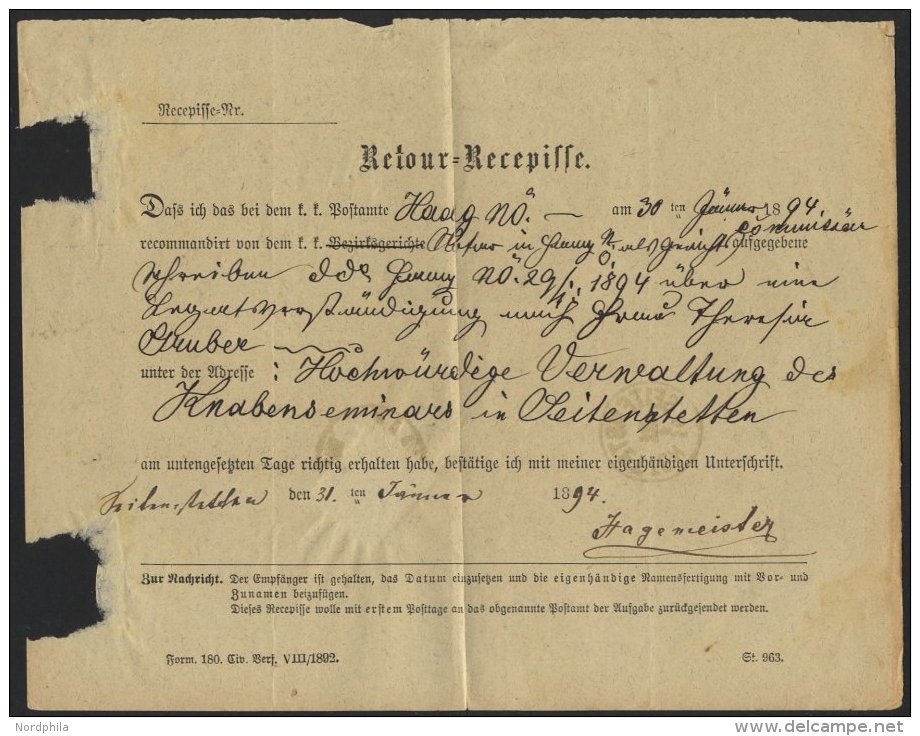 Recepisse-Nr.
Retour-Recepisse.
Dass ich das bei dem k. k. Postamte Haag NÖ. — am 30 ten Jänner 1894
recommandirt von dem k. k. Bezirksgerichte Notar in Haag NÖ. als Gerichtscommissär aufgegebene
Schreiben ddo Haag NÖ. 29/1. 1894 über eine
Legatsverständigung nach Frau Theresia
Gruber
unter der Adresse : Hochwürdige Verwaltung des
Knabenseminars in Seitenstetten
am untengesetzten Tage richtig erhalten habe, bestätige ich mit meiner eigenhändigen Unterschrift.
Seitenstetten den 31. ten Jänner 1894.
Hagemeister
Zur Nachricht. Der Empfänger ist gehalten, das Datum einzusetzen und die eigenhändige Namensfertigung mit Vor- und
Zunamen beizufügen.
Dieses Recepisse wolle mit erstem Posttage an das obgenannte Postamt der Aufgabe zurückgesendet werden.
Form. 180. Civ. Verf. VIII/1892. St. 963.
Nordphila
www.delcampe.net